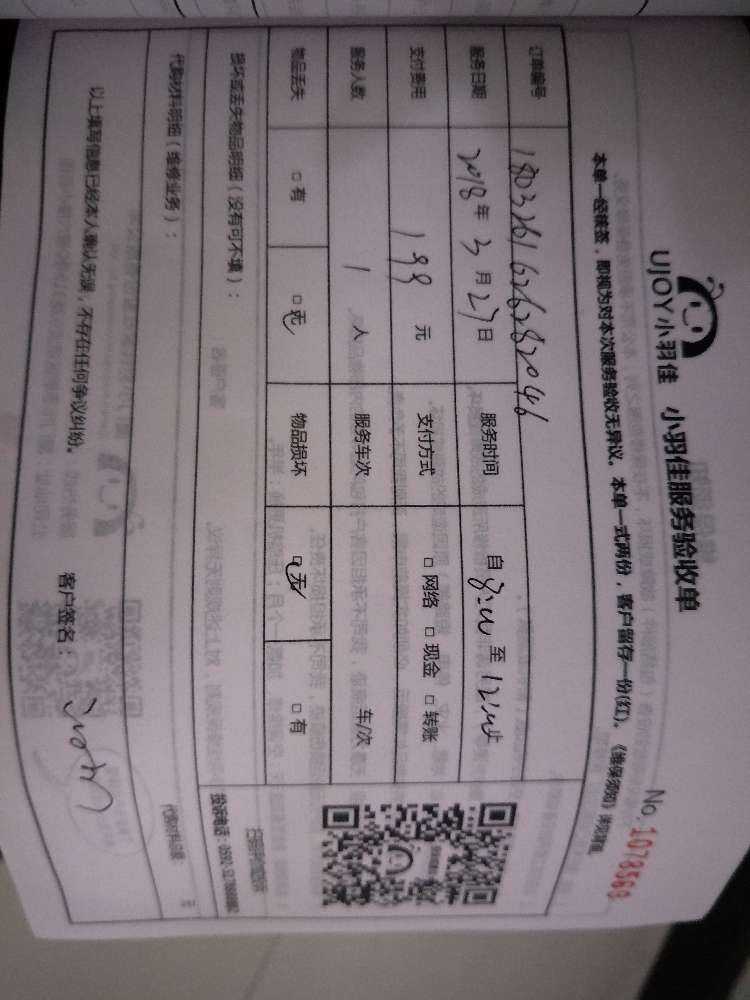 UJOY小羽佳 小羽佳服务验收单 No.1078569
本单一经核签，即视为对本次服务验收无异议。本单一式两份，客户留存一份(红)。《维保须知》详见背面。
订单编号 1803261626282046
服务日期 2018年3月27日 服务时间 自8:00至12:00止
支付费用 199元 支付方式 □网络 □现金 □转账
服务人数 1人 服务车次 车/次
物品丢失 □有 □无 物品损坏 □无 □有
损坏或丢失物品明细（没有可不填）：
代购材料明细（维修业务）：
以上填写信息已经本人确认无误，不存在任何争议纠纷。 客户签名：
UJOY